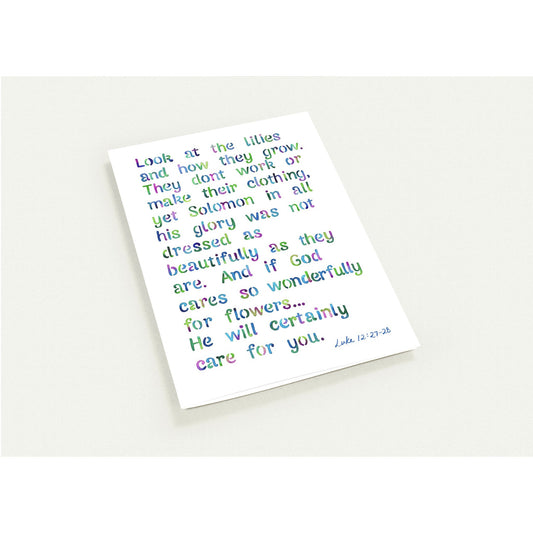 Look at the lilies
and how they grow.
They dont work or
make their clothing,
yet Solomon in all
his glory was not
dressed as
beautifully as they
are. And if God
cares so wonderfully
for flowers...
He will certainly
care for you.
Luke 12:27-28